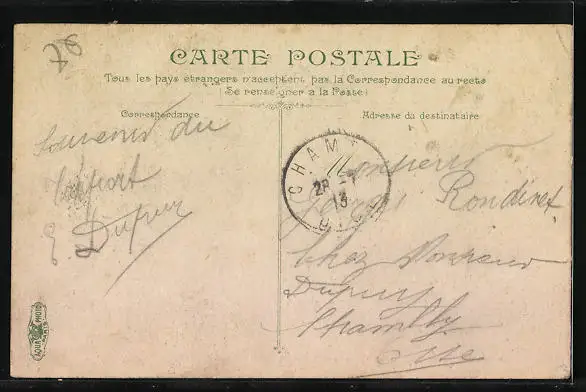 78
CARTE POSTALE
Tous les pays étrangers n'acceptent pas la Correspondance au recto
(Se renseigner à la Poste)
Correspondance
Adresse du destinataire
Souvenir du
E. Dupuy
CHAM
13
Monsieur
Rondinet
Chez Monsieur
Dupuy
Chambly
Oise
AQUA PHOTO
PARIS